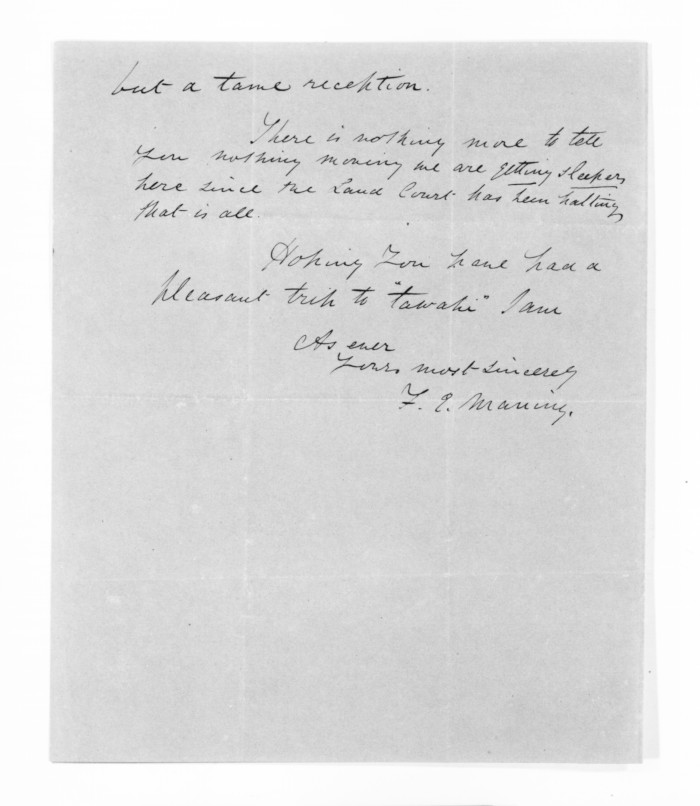 but a tame reception.
There is nothing more to tell
you nothing moving we are getting sleepy
here since the Land Court has been halting
that is all.
Hoping You have had a
pleasant trip to "tawahi" I am
As ever
Yours most sincerely
F. E. Maning.